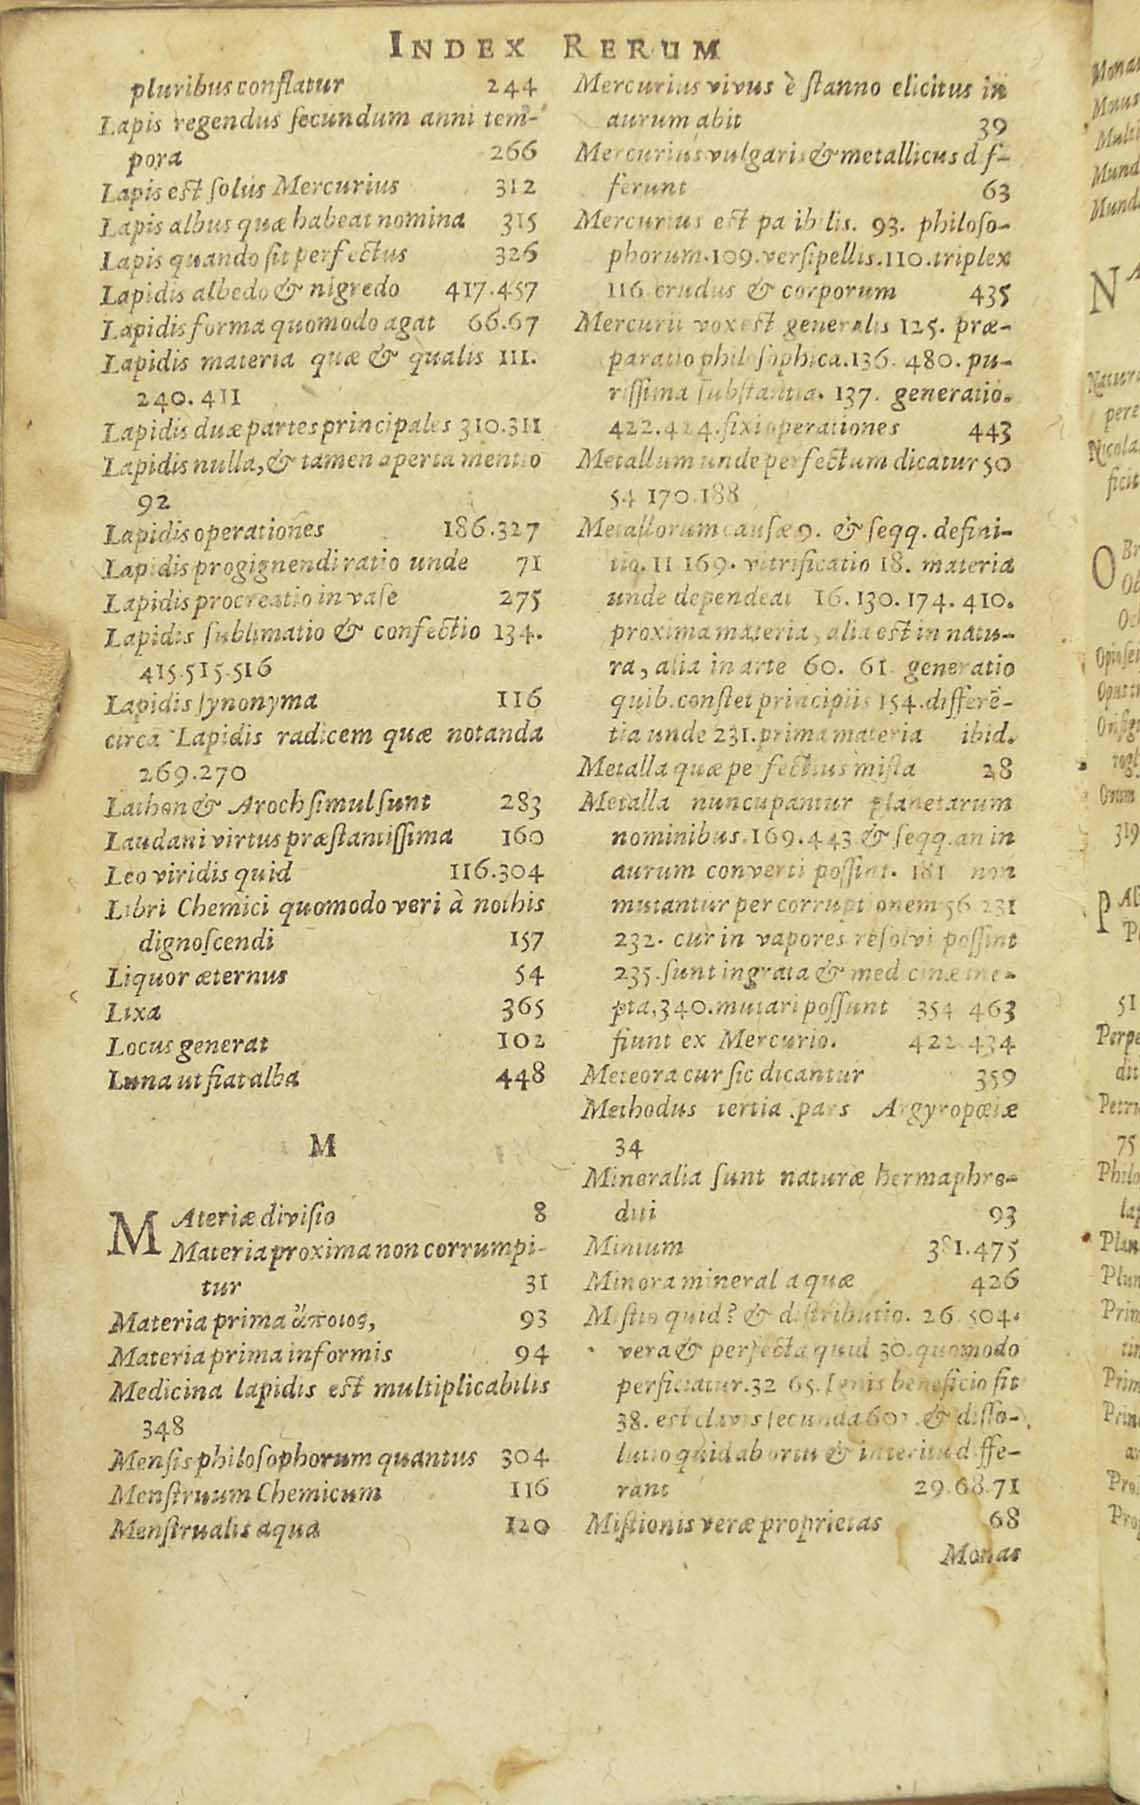 INDEX RERUM
pluribus conflatur 244
Lapis regendus ſecundum anni tem-
pora 266
Lapis est ſolus Mercurius 312
Lapis albus quæ habeat nomina 315
Lapis quando ſit perfectus 326
Lapidis albedo & nigredo 417.457
Lapidis forma quomodo agat 66.67
Lapidis materia quæ & qualis 111.
240.411
Lapidis duæ partes principales 310.311
Lapidis nulla, & tamen aperta mentio
92
Lapidis operationes 186.327
Lapidis progignendi ratio unde 71
Lapidis procreatio in vaſe 275
Lapidis ſublimatio & confectio 134.
415.515.516
Lapidis ſynonyma 116
circa Lapidis radicem quæ notanda
269.270
Lathon & Aroch ſimul ſunt 283
Laudani virtus præſtantiſſima 160
Leo viridis quid 116.304
Libri Chemici quomodo veri à nothis
dignoſcendi 157
Liquor æternus 54
Lixa 365
Locus generat 102
Luna ut fiat alba 448
M
MAteriæ diviſio 8
Materia proxima non corrumpi-
tur 31
Materia prima ἄποιος, 93
Materia prima informis 94
Medicina lapidis est multiplicabilis
348
Menſis philoſophorum quantus 304
Menſtruum Chemicum 116
Menſtrualis aqua 120
Mercurius vivus è ſtanno elicitus in
aurum abit 39
Mercurius vulgaris & metallicus dif-
ferunt 63
Mercurius est patibilis. 93. philoſo-
phorum.109.verſipellis.110.triplex
116 crudus & corporum 435
Mercurii vox est generalis 125. præ-
paratio philoſophica.136. 480. pu-
riſſima ſubſtantia. 137. generatio.
422.424.fixi operationes 443
Metallum unde perfectum dicatur 50
54 170.188
Metallorum cauſæ 9. & ſeqq. defini-
tio. 11 169. vitrificatio 18. materia
unde dependeat 16.130.174.410.
proxima materia, alia est in natu-
ra, alia in arte 60. 61 generatio
quib. conſtet principiis 154.differē-
tia unde 231.prima materia ibid.
Metalla quæ perfectius miſta 28
Metalla nuncupantur planetarum
nominibus.169.443 & ſeqq. an in
aurum converti poſſint. 181 non
mutantur per corruptionem 56 231
232. cur in vapores reſolvi poſſint
235.ſunt ingrata & medicinæ ine-
pta,340.mutari poſſunt 354 463
fiunt ex Mercurio. 422.434
Meteora cur ſic dicantur 359
Methodus tertia pars Argyropœiæ
34
Mineralia ſunt naturæ hermaphro-
diti 93
Minium 381.475
Minora mineralia quæ 426
Miſtio quid? & diſtributio. 26 504.
vera & perfecta quid 30.quomodo
perficiatur.32 65. Ignis beneficio fit
38. est clavis ſecunda & diſſo-
lutio quid ab ortu & interitu diffe-
rant 29.68.71
Miſtionis veræ proprietas 68
Monas